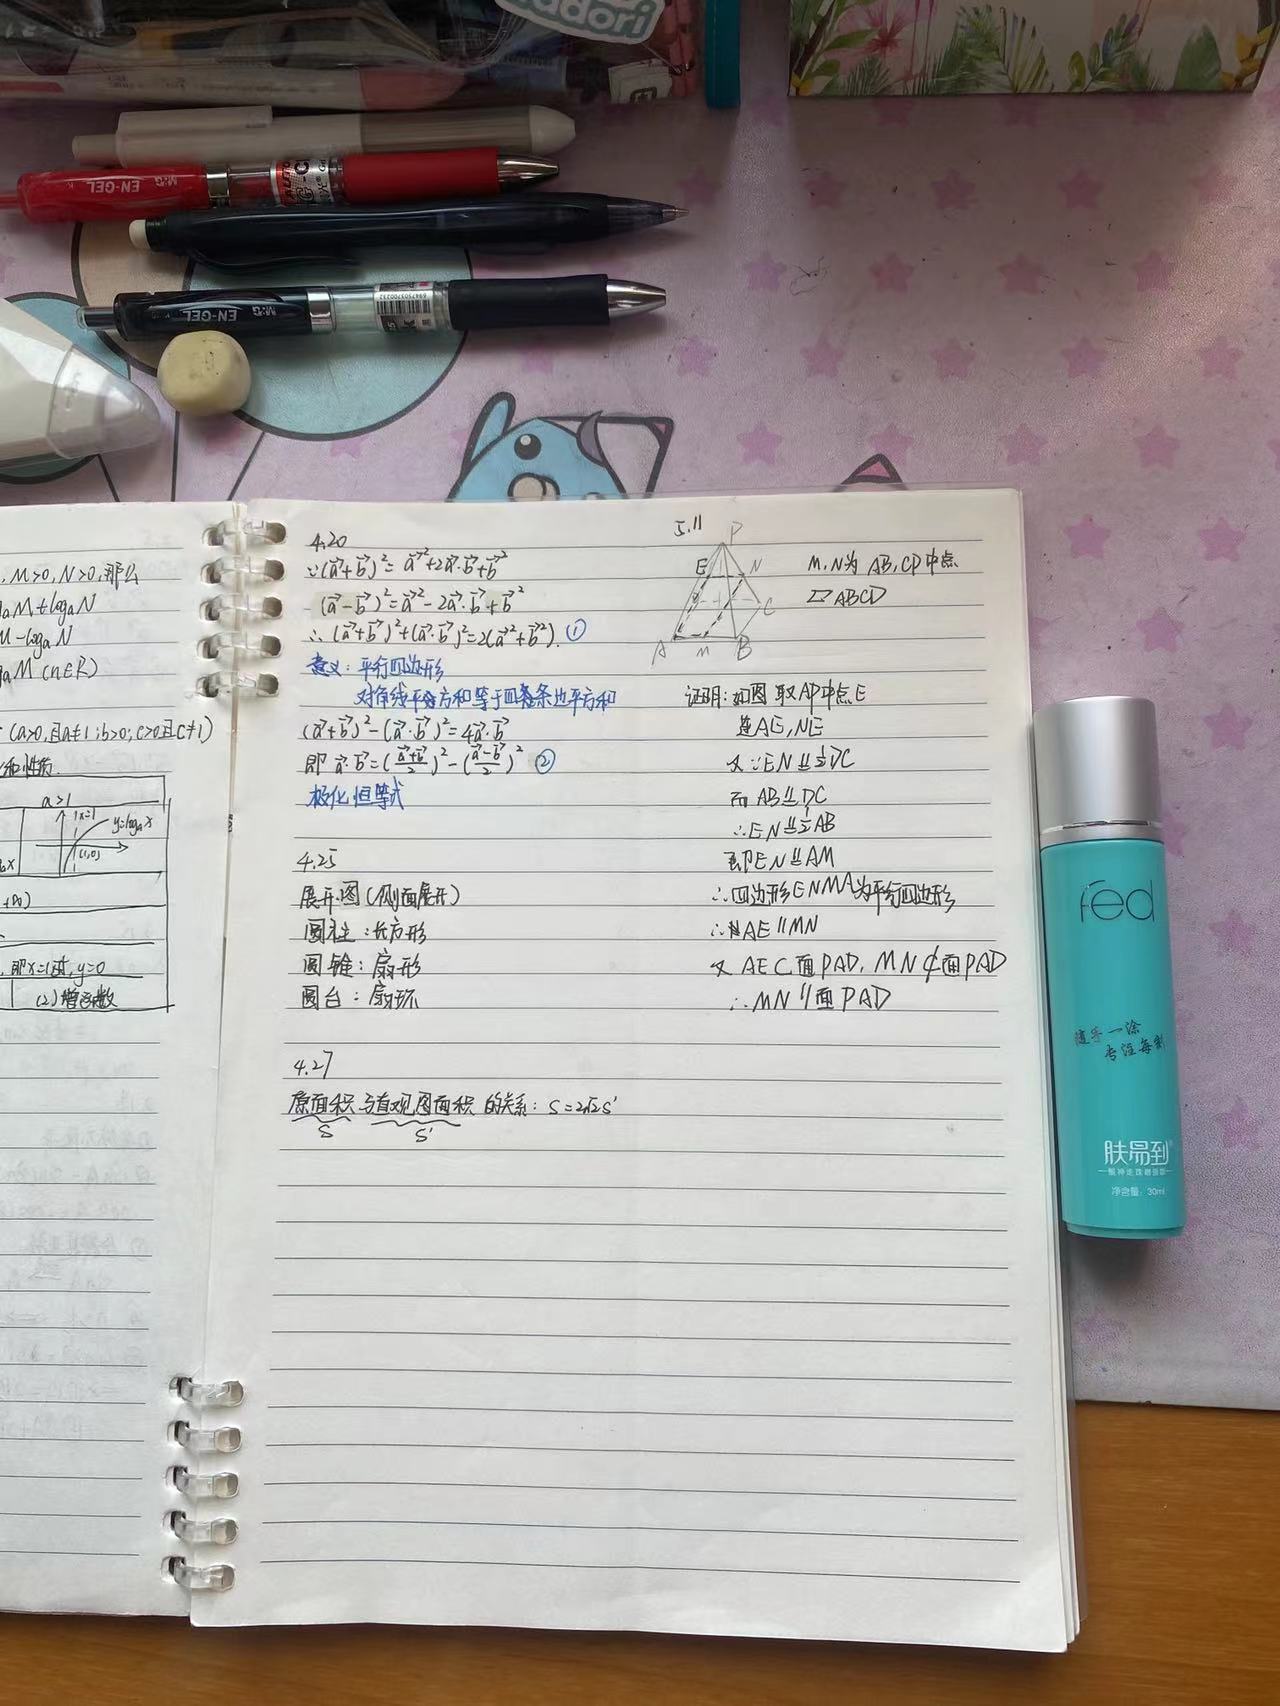 adori
EN-GEL
M&G
EN-GEL
M&G
, M>0, N>0, 那么
logₐN
M-logₐN
M (n∈R)
(a>0,且a≠1;b>0;c>0且c≠1)
和性质.
a>1
x=1
y=logₐx
(1,0)
即x=1时, y=0
(2)增函数
4.20
∵(a⃗+b⃗)²=a⃗²+2a⃗·b⃗+b⃗²
(a⃗-b⃗)²=a⃗²-2a⃗·b⃗+b⃗²
∴(a⃗+b⃗)²+(a⃗-b⃗)²=2(a⃗²+b⃗²). ①
意义: 平行四边形
对角线平方和等于四条边平方和
(a⃗+b⃗)²-(a⃗-b⃗)²=4a⃗·b⃗
即 a⃗·b⃗=(a⃗+b⃗/2)²-(a⃗-b⃗/2)² ②
极化恒等式
4.25
展开图(侧面展开)
圆柱:长方形
圆锥:扇形
圆台:扇环
4.27
原面积与直观图面积的关系: S=2√2S'
S
S'
5.11
P
E
N
C
A
M
B
M,N为AB,CP中点
▱ABCD
证明:如图取AP中点E
连AE,NE
又∵EN⫽½DC
而AB⫽DC
∴EN⫽½AB
即EN⫽AM
∴四边形ENMA为平行四边形
∴AE∥MN
又AE⊂面PAD, MN⊄面PAD
∴MN∥面PAD
fed
随手一涂
专注每刻
肤易到
净含量: 30ml